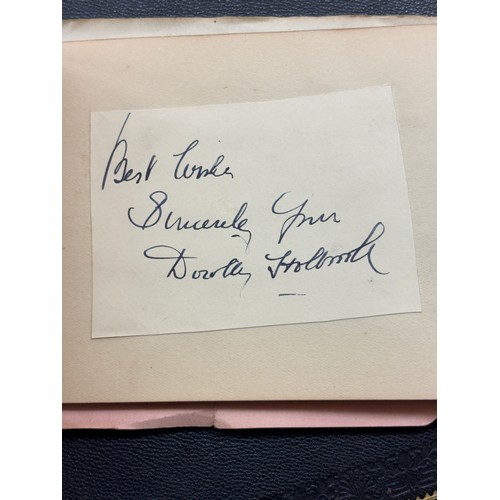 Best Wishes
Sincerely Yours
Dorothy Holbrook